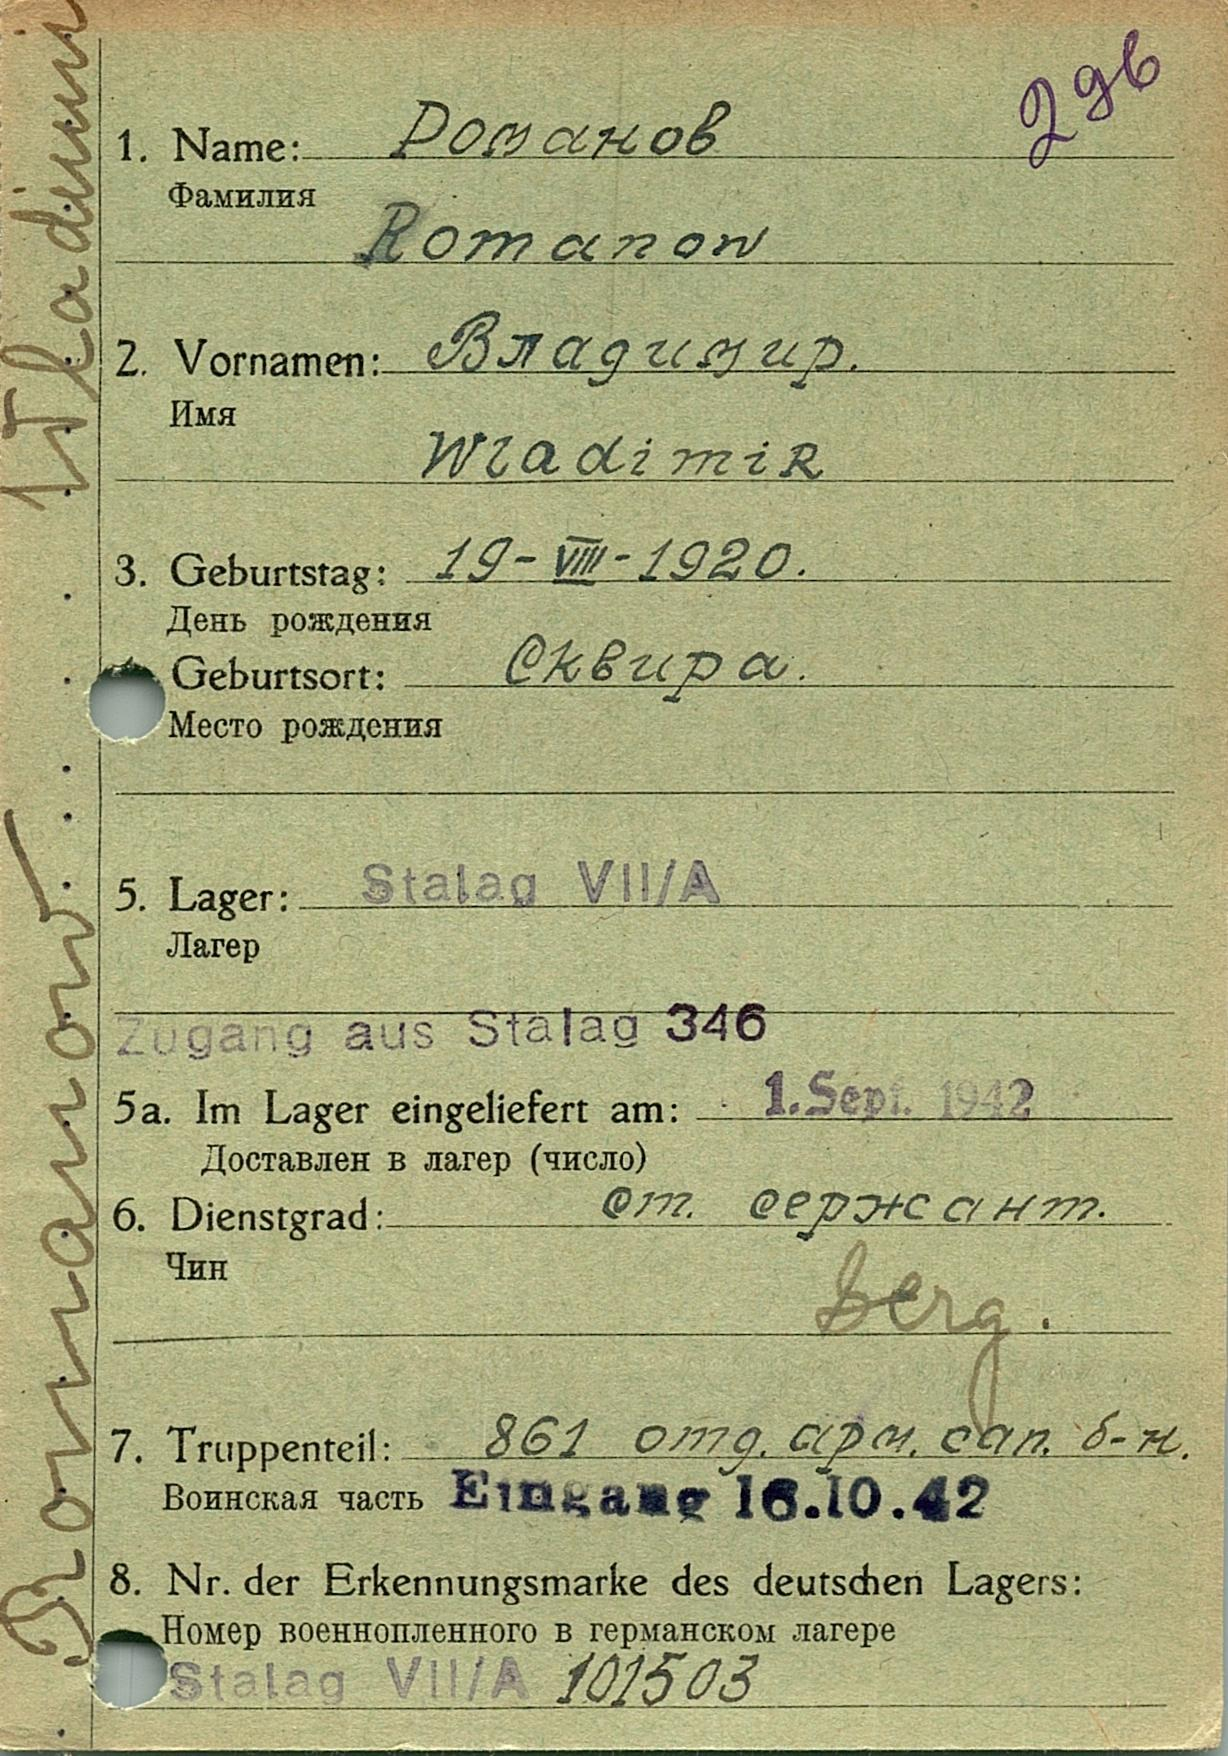 296
1. Name: Романов
Фамилия
Romanow
2. Vornamen: Владимир.
Имя
Wladimir
3. Geburtstag: 19-VIII-1920.
День рождения
Geburtsort: Сквира.
Место рождения
5. Lager: Stalag VII/A
Лагер
Zugang aus Stalag 346
5a. Im Lager eingeliefert am: 1. Sept. 1942
Доставлен в лагер (число)
6. Dienstgrad: ст. сержант.
Чин
Serg.
7. Truppenteil: 861 отд. арм. сап. б-н.
Воинская часть Eingang 16.10.42
8. Nr. der Erkennungsmarke des deutschen Lagers:
Номер военнопленного в германском лагере
Stalag VII/A 101503
Romanow Wladimir